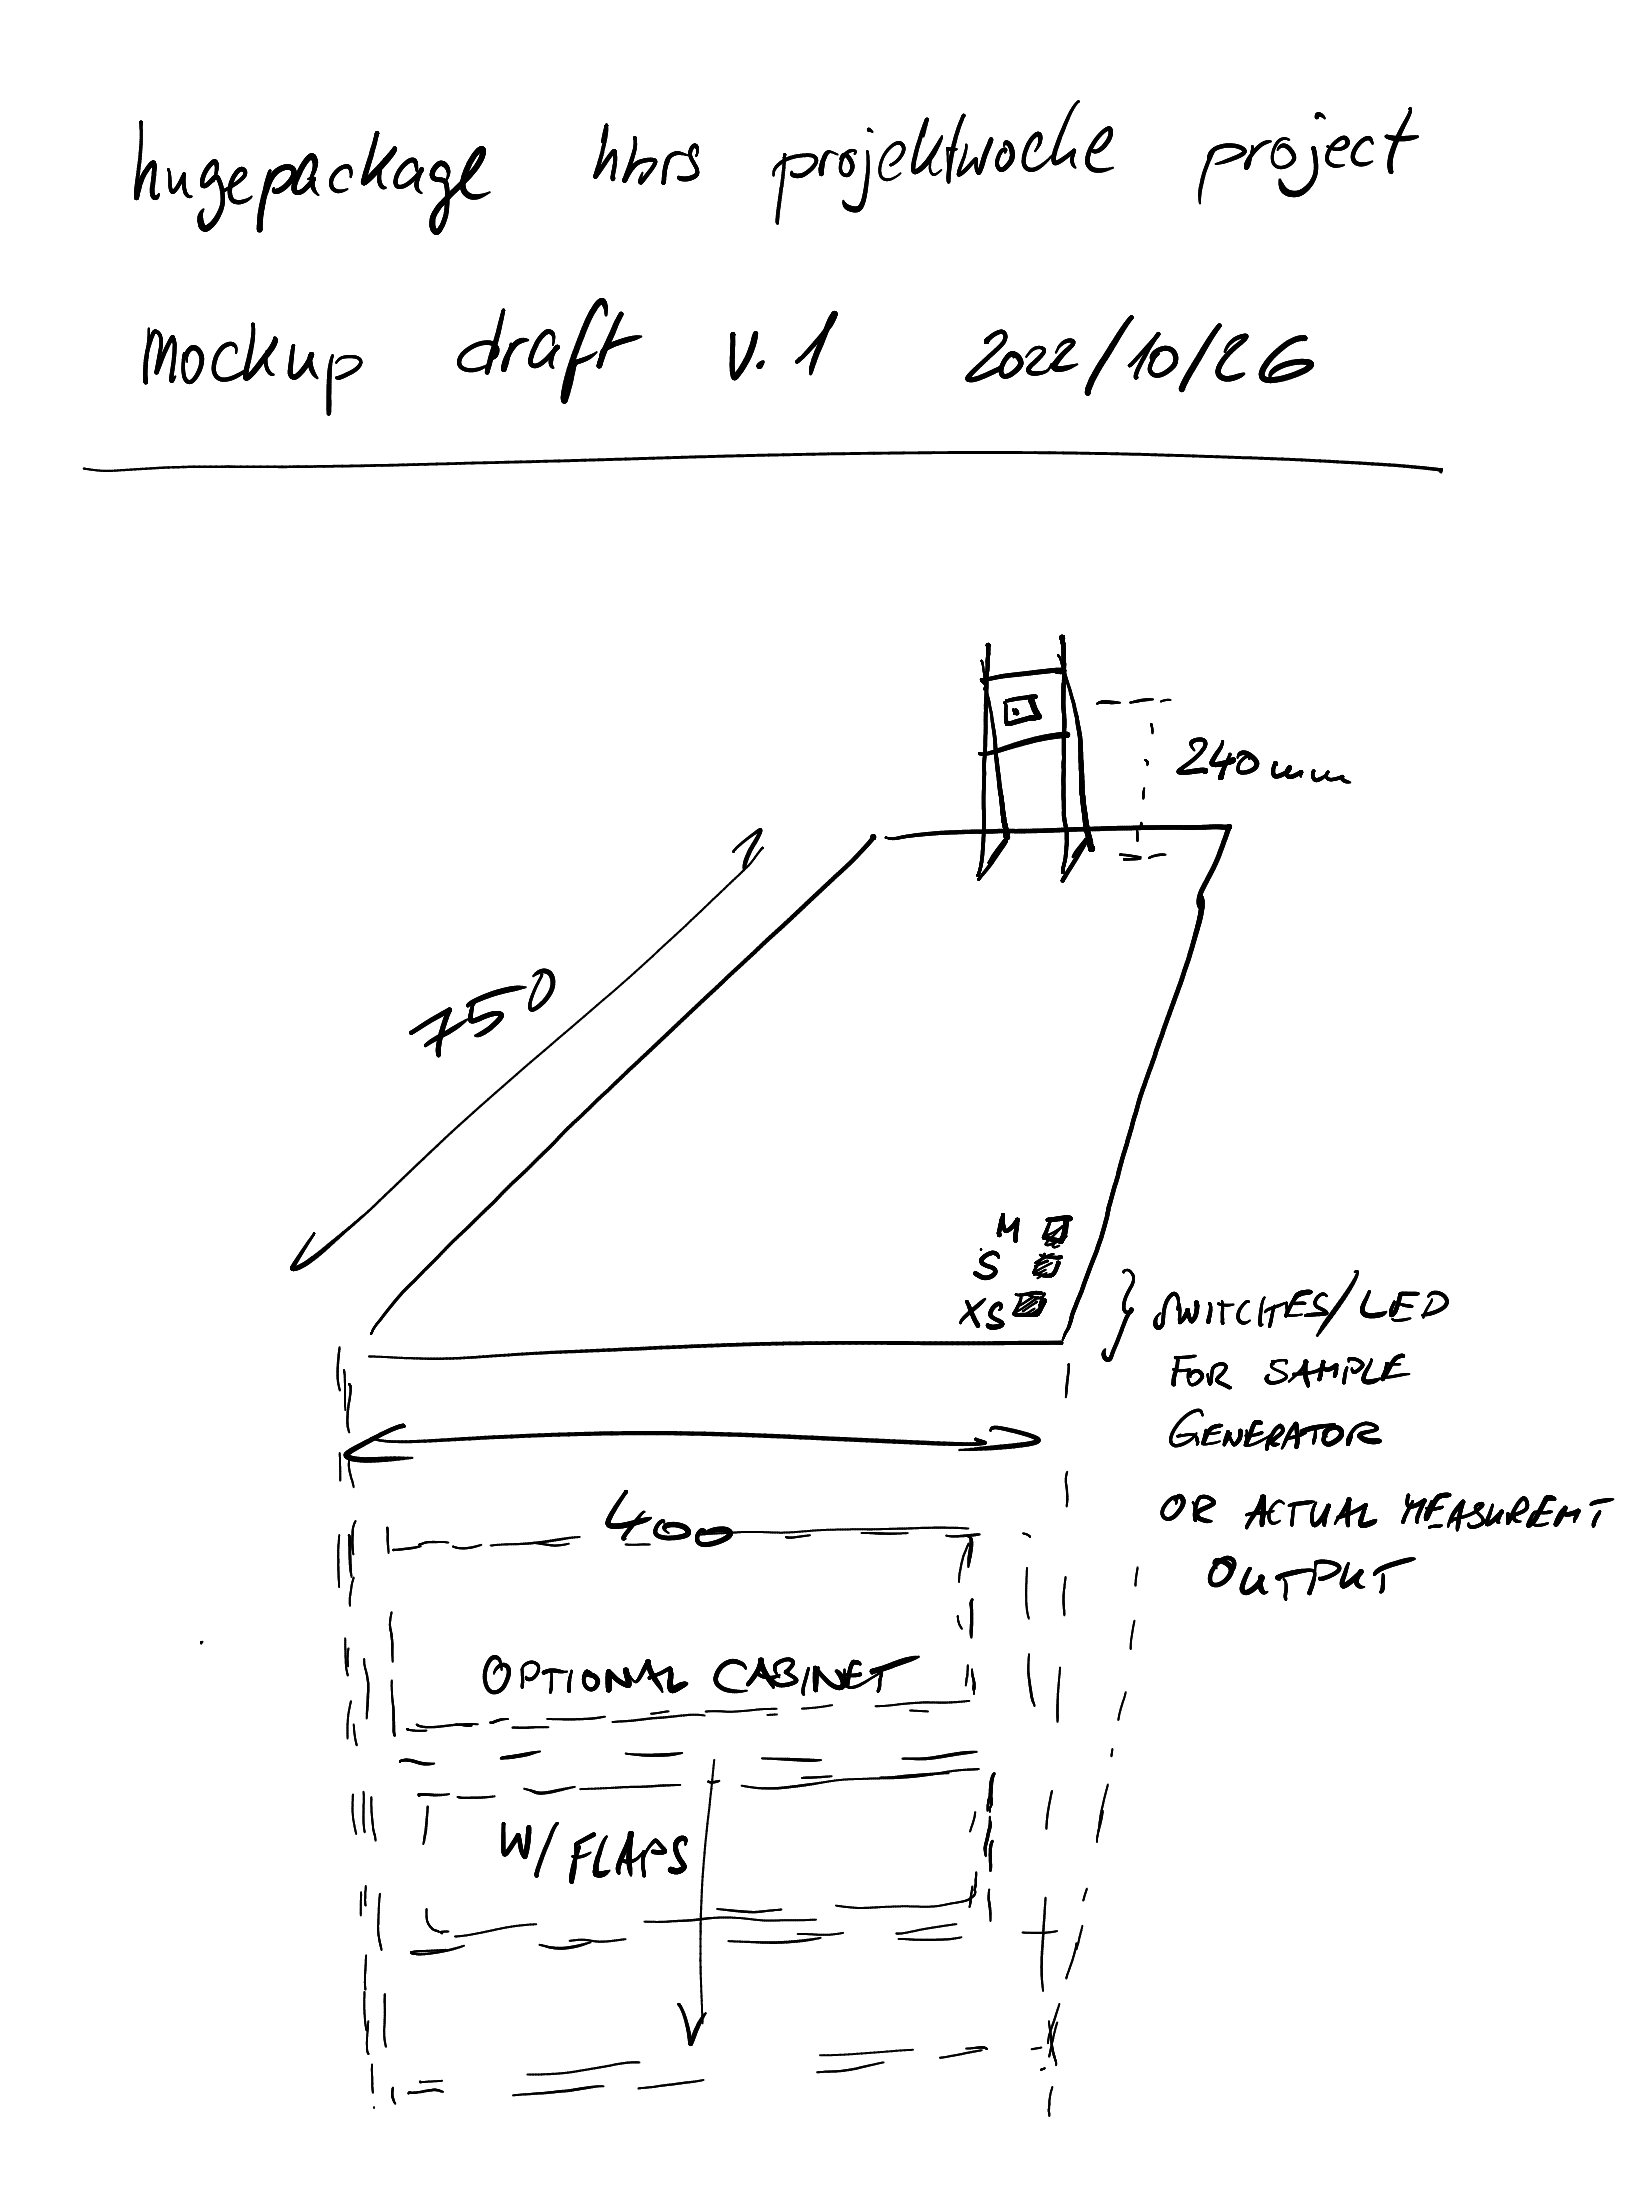 hugepackage hbrs projektwoche project
mockup draft v. 1 2022/10/26
240mm
750
M
S
XS
SWITCHES/LED
FOR SAMPLE
GENERATOR
OR ACTUAL MEASUREMT
OUTPUT
400
OPTIONAL CABINET
W/FLAPS